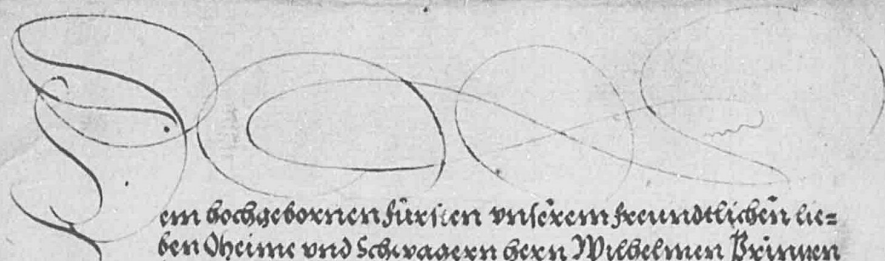 Dem hochgebornen Fürsten vnserem freundtlichen lie=
ben Oheime vnd Schwagern hern Wilhelmen Printzen